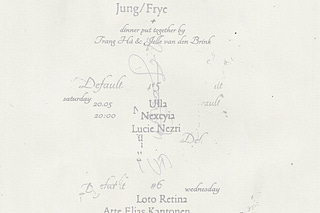 Jung/Frye
+
dinner put together by
Trang Hà & Jelle van den Brink
Default #5
saturday
20.05 Ulla
20:00 Nexcyia
Lucie Nezri
Def
#6 wednesday
Loto Retina
Arte Elias Kantonen